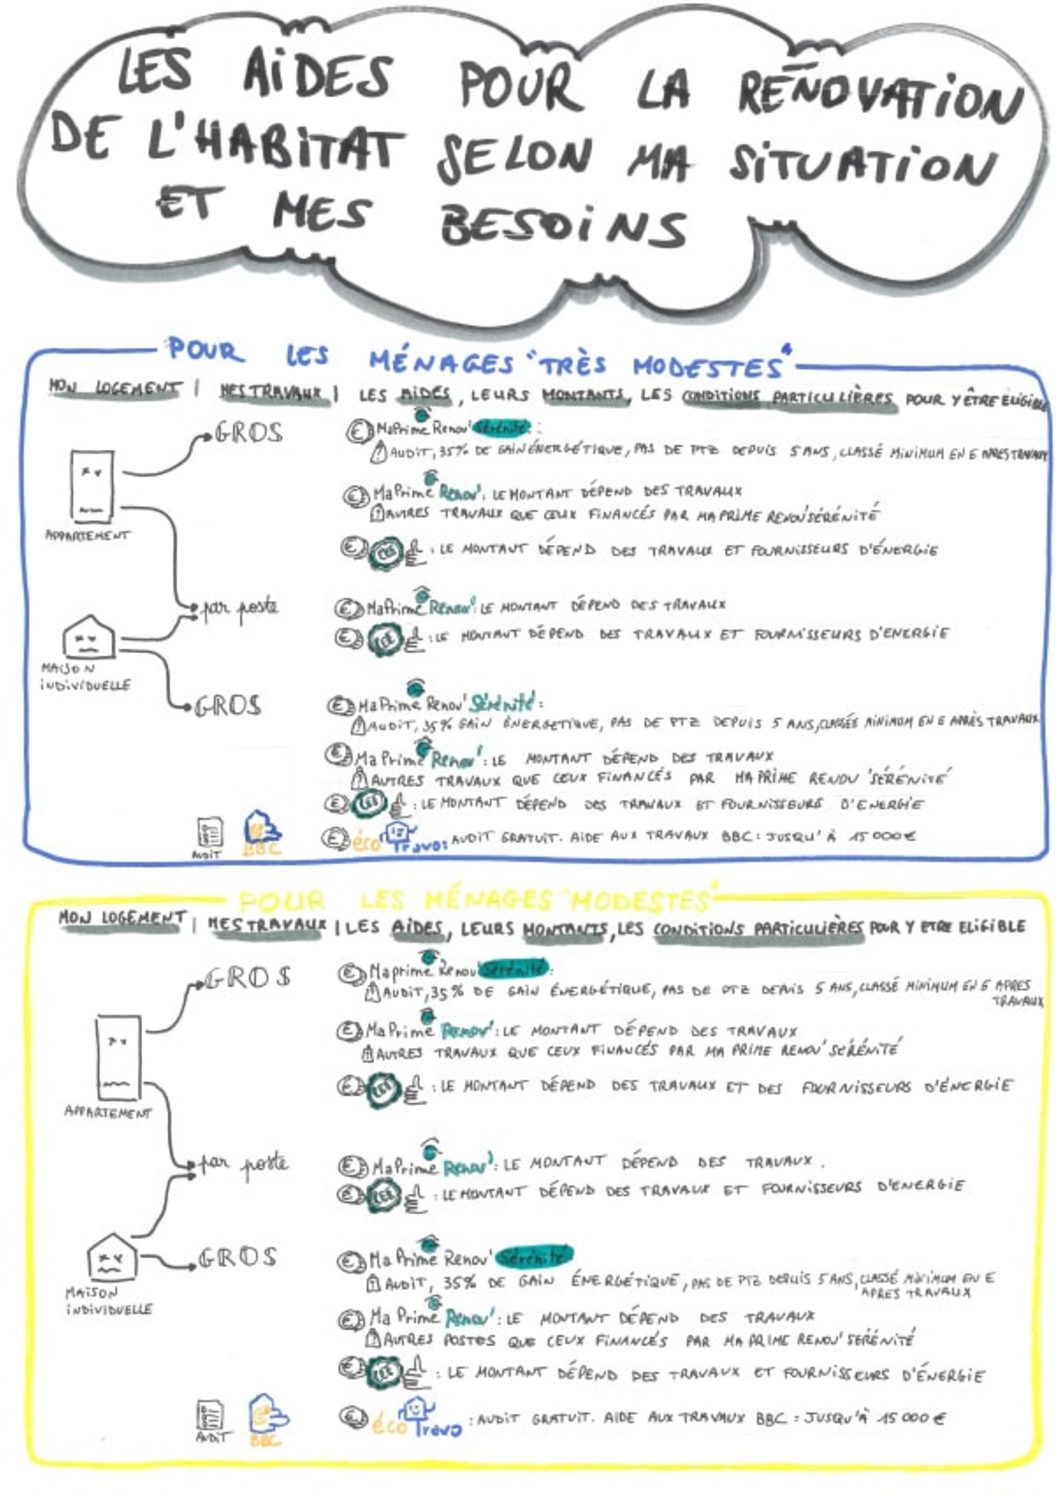 LES AIDES POUR LA RÉNOVATION
DE L'HABITAT SELON MA SITUATION
ET MES BESOINS
POUR LES MÉNAGES "TRÈS MODESTES"
MON LOGEMENT | MES TRAVAUX | LES AIDES, LEURS MONTANTS, LES CONDITIONS PARTICULIÈRES POUR Y ÊTRE ELIGIBLE
GROS
€ MaPrime Renov' Sérénité :
! AUDIT, 35% DE GAIN ÉNERGÉTIQUE, PAS DE PTZ DEPUIS 5 ANS, CLASSÉ MINIMUM EN E APRES TRAVAUX
APPARTEMENT
€ MaPrime Renov' : LE MONTANT DÉPEND DES TRAVAUX
! AUTRES TRAVAUX QUE CEUX FINANCÉS PAR MA PRIME RENOV' SÉRÉNITÉ
€ CEE : LE MONTANT DÉPEND DES TRAVAUX ET FOURNISSEURS D'ÉNERGIE
par poste
€ MaPrime Renov' : LE MONTANT DÉPEND DES TRAVAUX
€ CEE : LE MONTANT DÉPEND DES TRAVAUX ET FOURNISSEURS D'ENERGIE
MAISON
INDIVIDUELLE
GROS
€ MaPrime Renov' Sérénité :
! AUDIT, 35% GAIN ÉNERGETIQUE, PAS DE PTZ DEPUIS 5 ANS, CLASSÉE MINIMUM EN E APRÈS TRAVAUX
€ Ma Prime Renov' : LE MONTANT DÉPEND DES TRAVAUX
! AUTRES TRAVAUX QUE CEUX FINANCÉS PAR MA PRIME RENOV 'SÉRÉNITÉ'
€ CEE : LE MONTANT DÉPEND DES TRAVAUX ET FOURNISSEURS D'ENERGIE
AUDIT BBC
€ éco Travo : AUDIT GRATUIT. AIDE AUX TRAVAUX BBC : JUSQU'À 15 000 €
POUR LES MÉNAGES "MODESTES"
MON LOGEMENT | MES TRAVAUX | LES AIDES, LEURS MONTANTS, LES CONDITIONS PARTICULIÈRES POUR Y ETRE ELIGIBLE
GROS
€ Maprime Renov' Sérénité :
! AUDIT, 35% DE GAIN ÉNERGÉTIQUE, PAS DE PTZ DEPUIS 5 ANS, CLASSÉ MINIMUM EN E APRES
TRAVAUX
€ Ma Prime Renov' : LE MONTANT DÉPEND DES TRAVAUX
! AUTRES TRAVAUX QUE CEUX FINANCÉS PAR MA PRIME RENOV' SÉRÉNITÉ
APPARTEMENT
€ CEE : LE MONTANT DÉPEND DES TRAVAUX ET DES FOURNISSEURS D'ÉNERGIE
par poste
€ MaPrime Renov' : LE MONTANT DÉPEND DES TRAVAUX.
€ CEE : LE MONTANT DÉPEND DES TRAVAUX ET FOURNISSEURS D'ENERGIE
MAISON
INDIVIDUELLE
GROS
€ Ma Prime Renov' Sérénité
! AUDIT, 35% DE GAIN ÉNERGÉTIQUE, PAS DE PTZ DEPUIS 5 ANS, CLASSÉ MINIMUM EN E
APRES TRAVAUX
€ Ma Prime Renov' : LE MONTANT DÉPEND DES TRAVAUX
! AUTRES POSTES QUE CEUX FINANCÉS PAR MA PRIME RENOV' SÉRÉNITÉ
€ CEE : LE MONTANT DÉPEND DES TRAVAUX ET FOURNISSEURS D'ÉNERGIE
AUDIT BBC
€ éco Travo : AUDIT GRATUIT. AIDE AUX TRAVAUX BBC : JUSQU'À 15 000 €